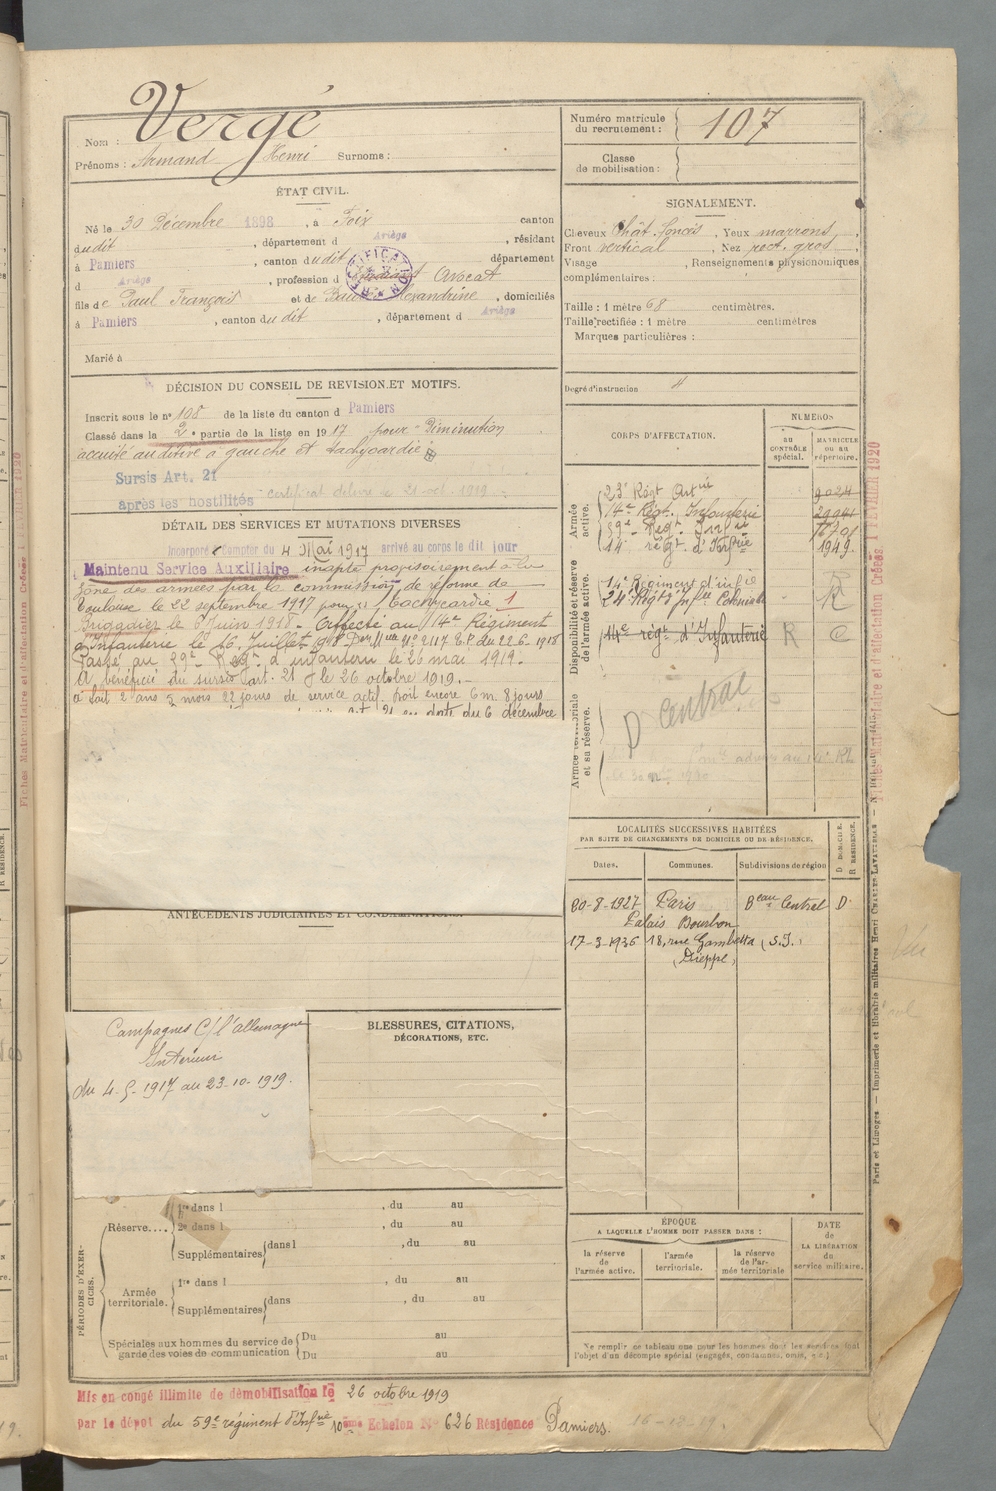 Nom : Vergé
Prénoms : Armand Henri Surnoms :
Numéro matricule du recrutement : 107
Classe de mobilisation :
ÉTAT CIVIL.
Né le 30 Décembre 1898, à Foix, canton
dudit, département d Ariège, résidant
à Pamiers, canton dudit, département
d Ariège, profession d Avocat
fils de Paul François et de Alexandrine, domiciliés
à Pamiers, canton dudit, département d Ariège
Marié à
SIGNALEMENT.
Cheveux chât. foncés, Yeux marrons,
Front vertical, Nez rect. gros,
Visage , Renseignements physionomiques
complémentaires :
Taille : 1 mètre 68 centimètres.
Taille rectifiée : 1 mètre centimètres
Marques particulières :
Degré d'instruction 4
DÉCISION DU CONSEIL DE REVISION ET MOTIFS.
Inscrit sous le n° 108 de la liste du canton d Pamiers
Classé dans la 2e partie de la liste en 1917 pour Diminution
acuité auditive à gauche et tachycardie
Sursis Art. 21
après les hostilités certificat délivré le 21 oct. 1919
DÉTAIL DES SERVICES ET MUTATIONS DIVERSES
Incorporé à compter du 4 Mai 1917 arrivé au corps le dit jour
Maintenu Service Auxiliaire inapte provisoirement à la
zone des armées par la commission de réforme de
Toulouse le 22 septembre 1917 pour Tachycardie 1
Brigadier le 8 Juin 1918. Affecté au 14e Régiment
d'Infanterie le 16 Juillet 1918 Don Mlle No 2117 E.P. du 22-6-1918
Passé au 59e Régt d'infanterie le 26 mai 1919.
A bénéficié du sursis art. 21 le 26 octobre 1919.
a fait 2 ans 5 mois 22 jours de service actif, doit encore 6 m. 8 jours
art 21 en date du 6 décembre
CORPS D'AFFECTATION.
NUMÉROS
au CONTRÔLE spécial.
MATRICULE OU AU répertoire.
Armée active.
23e Régt Artie 9024
14e Régt. Infanterie 29941
59e Régt Infie 16701
14e régt d'Infie 1949
Disponibilité et réserve de l'armée active.
14e Régiment d'infie R
24e Régt Infie Coloniale R
14e régt d'Infanterie R C
Armée territoriale et sa réserve.
D Central
LOCALITÉS SUCCESSIVES HABITÉES
PAR SUITE DE CHANGEMENTS DE DOMICILE OU DE RÉSIDENCE.
Dates. Communes. Subdivisions de région D DOMICILE. R RÉSIDENCE.
30-8-1927 Paris Beau Central D
Palais Bourbon
17-3-1936 18, rue Gambetta (S.I.)
(Dieppe)
ANTÉCÉDENTS JUDICIAIRES ET CONDAMNATIONS.
Campagnes C/ l'allemagne
Intérieur
du 4-5-1917 au 23-10-1919.
BLESSURES, CITATIONS,
DÉCORATIONS, ETC.
PÉRIODES D'EXERCICES.
Réserve....
1re dans l , du au
2e dans l , du au
Supplémentaires dans l , du au
Armée territoriale.
1re dans l , du au
Supplémentaires dans , du au
Spéciales aux hommes du service de garde des voies de communication
Du au
Du au
ÉPOQUE
A LAQUELLE L'HOMME DOIT PASSER DANS :
la réserve de l'armée active.
l'armée territoriale.
la réserve de l'armée territoriale
DATE de LA LIBÉRATION du service militaire.
Ne remplir ce tableau que pour les hommes dont les services font
l'objet d'un décompte spécial (engagés, condamnés, omis, etc.)
Mis en congé illimité de démobilisation le 26 octobre 1919
par le dépôt du 59e régiment d'Infie 10ème Echelon No 626 Résidence Pamiers. 16-12-19.
Fiches Matriculaire et d'affectation Créées 1 FÉVRIER 1920
Paris et Limoges — Imprimerie et librairie militaires Henri CHARLES-LAVAUZELLE